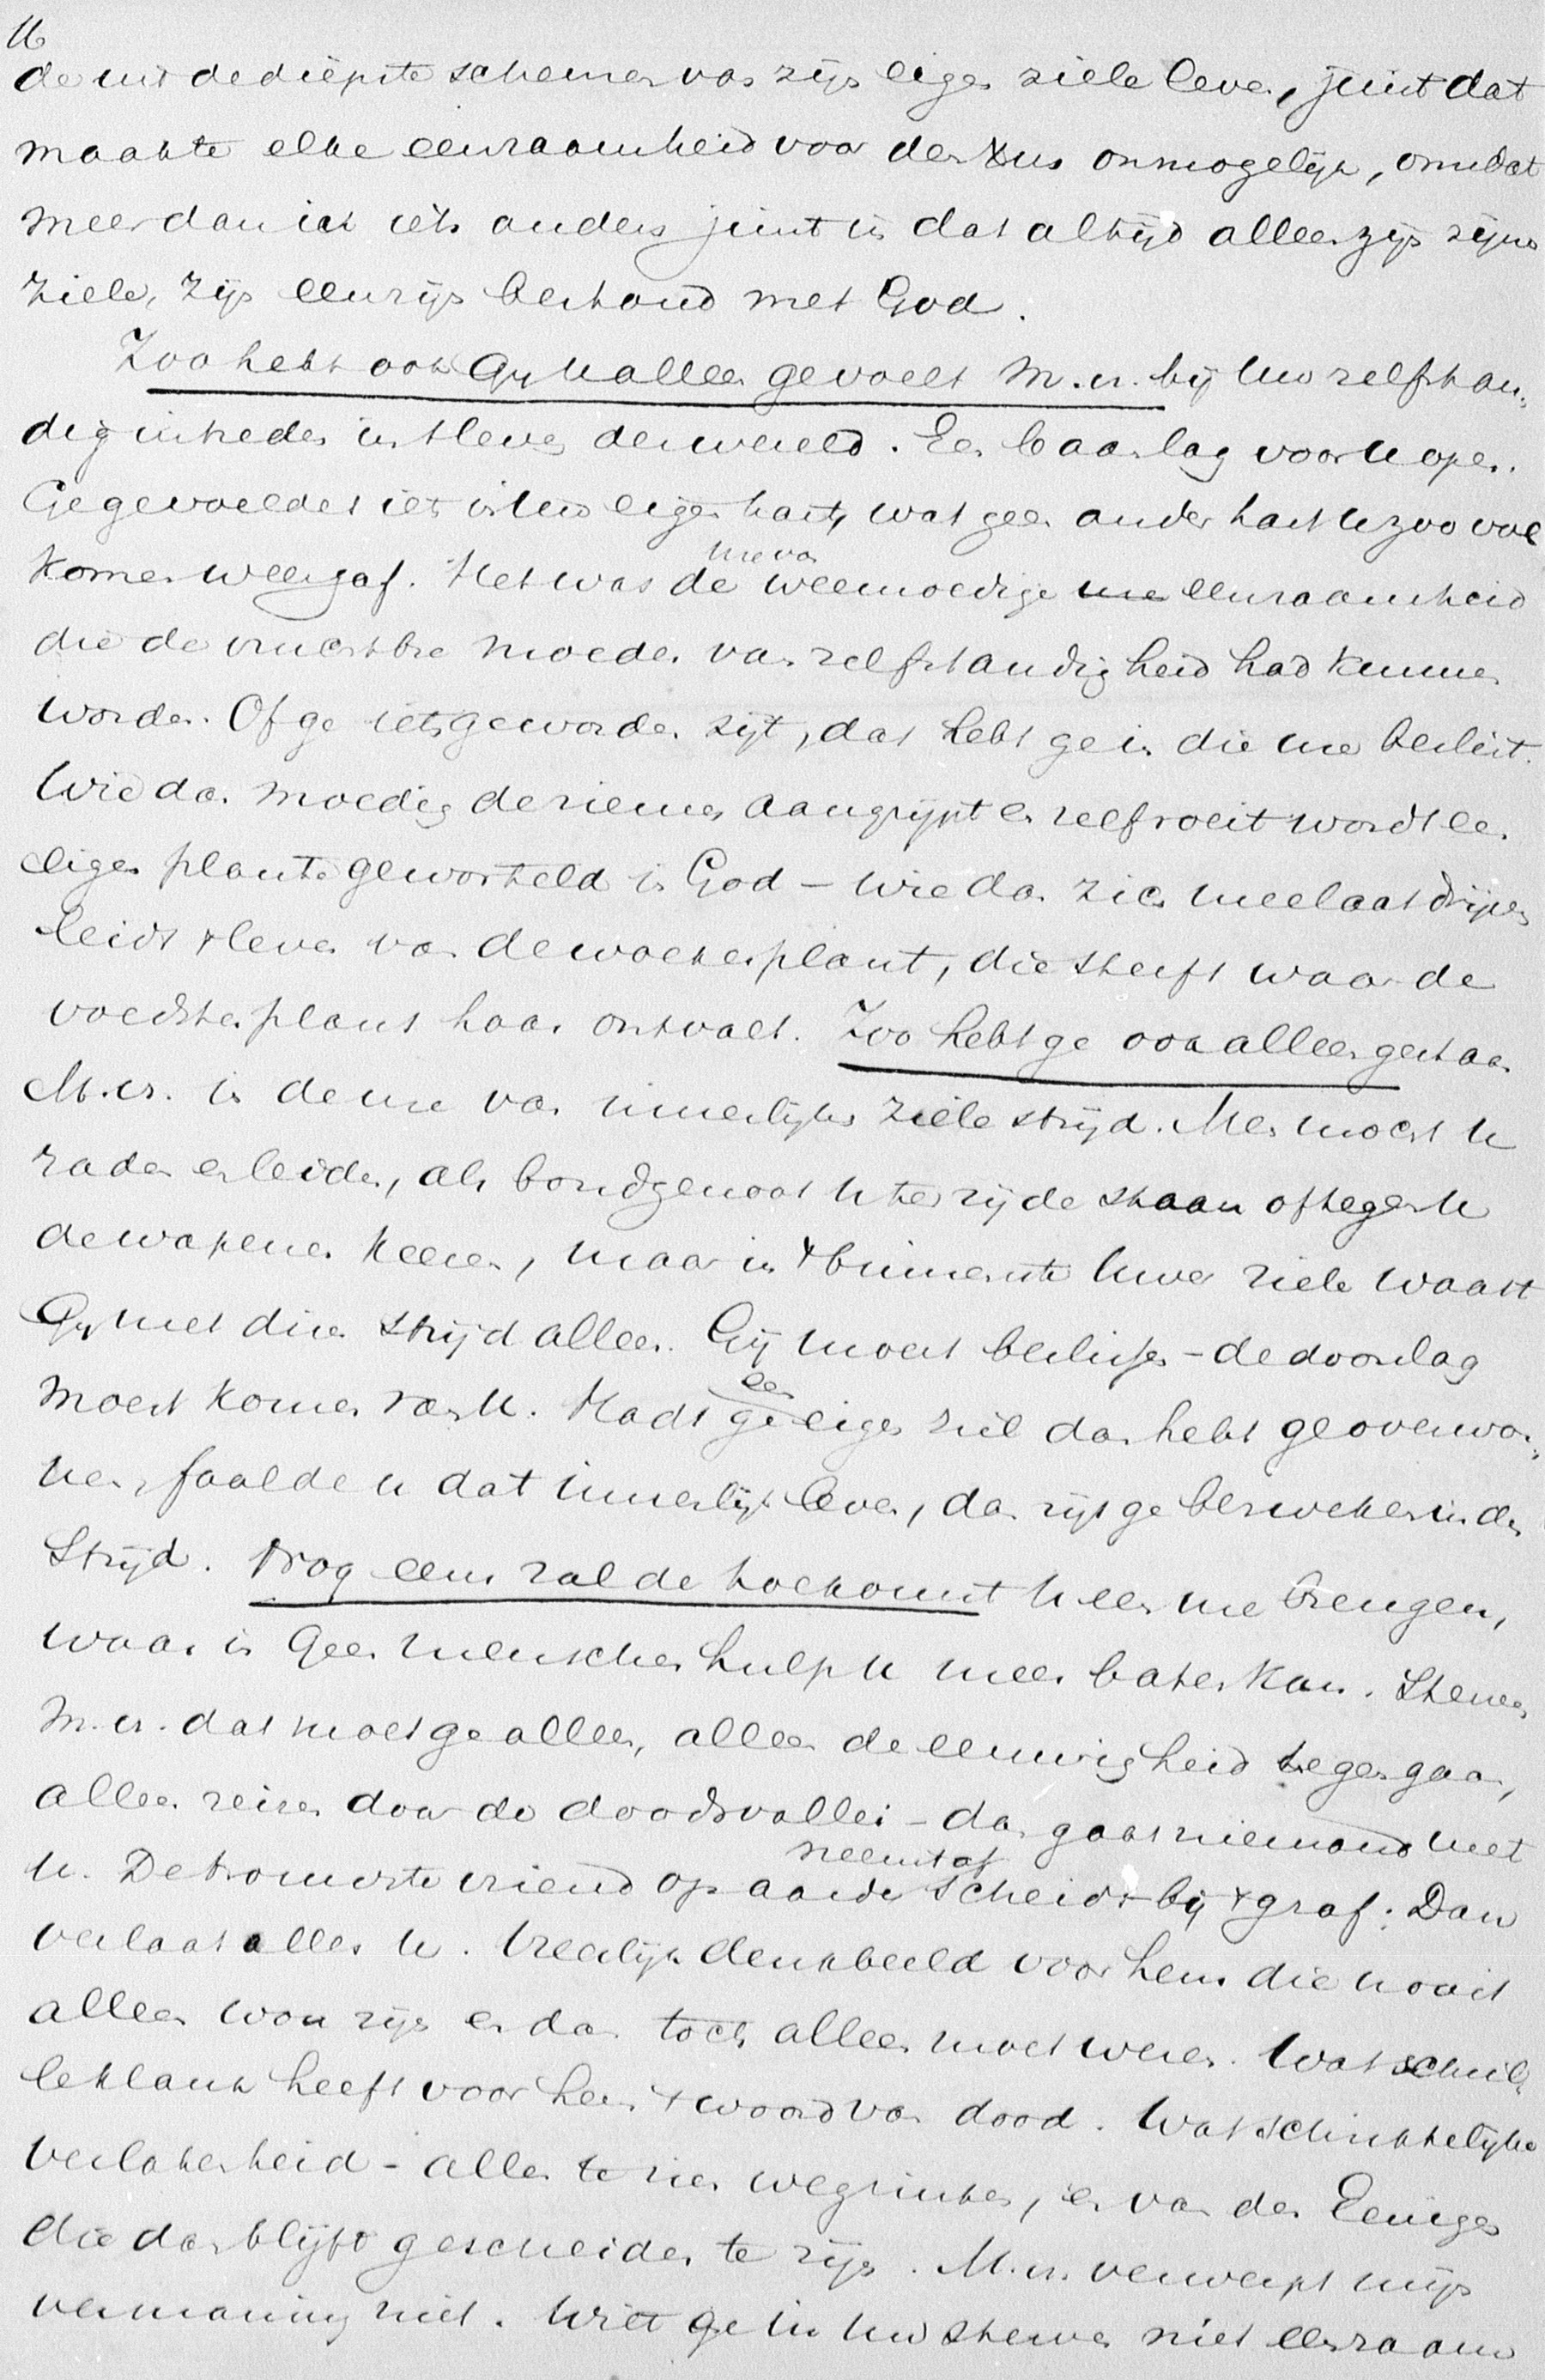 16
de uit de diepste schemer van zijn eigen ziele leven, juist dat
maakte elke eenzaamheid voor den onmogelijk, omdat
meer dan iets anders juist is dat altijd alleen zijn zijns
ziele, zijn eenzijn bestond met God.
Zoo hebt ook Gij U alleen gevoelt M. vr. bij Uw zelfstan,
dig intreden in 't leven der wereld. Een baan lag voor U open.
Ge gevoeldet iets in Uw eigen hart, wat geen ander hart U zoo vol
komen weergaf. Het was de ure van weemoedige ure eenzaamheid
die de vruchtbre moeder van zelfstandigheid had kunnen
worden. Of ge iets geworden zijt, dat hebt ge in die ure beslist.
Wie dan moedig de riemen aangrijpt en zelf roeit wordt een
eigen plante geworteld in God – wie dan zich meelaat drijven
leidt 't leven van de woekerplant, die sterft waar de
voedsterplant haar ontvalt. Zoo hebt ge ook alleen gestaan
M. vr. in de ure van innerlijken ziele strijd. Men mocht U
raden en leiden, als bondgenoot U ter zijde staan of tegen U
de wapenen keeren, maar in 't binnenste Uwer ziele waart
Gij met dien strijd alleen. Gij moest beslissen – de doorslag
moest komen van U. Hadt ge een eigen ziel dan hebt ge overwon,
nen, faalde U dat innerlijk leven, dan zijt ge bezweken in den
strijd. Nog eens zal de toekomst U een ure brengen,
waar in Geen menschen hulp U meer baten kan. Sterven
M. vr. dat moet ge alleen, alleen de eeuwigheid tegen gaan,
alleen reizen door de doodsvallei – dan gaat niemand met
U. De trouwste vriend op aarde neemt af scheidt bij 't graf. Dan
verlaat alles U. Vreeslijk denkbeeld voor hem die nooit
alleen won zijn en dan toch alleen moet wezen. Wat schril,
le klank heeft voor hem 't woord van dood. Wat schrikkelijke
verlatenheid – alles te zien wegzinken, en van den Eenigen
die dan blijft gescheiden te zijn. M. vr. verwerpt mijn
vermaning niet. Wilt ge in Uw sterven niet eenzaam